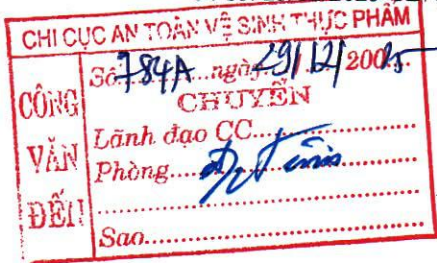 CHI CỤC AN TOÀN VỆ SINH THỰC PHẨM
CÔNG VĂN ĐẾN
Số 784A ngày 29/12/2005
CHUYỂN
Lãnh đạo CC
Phòng
Sao